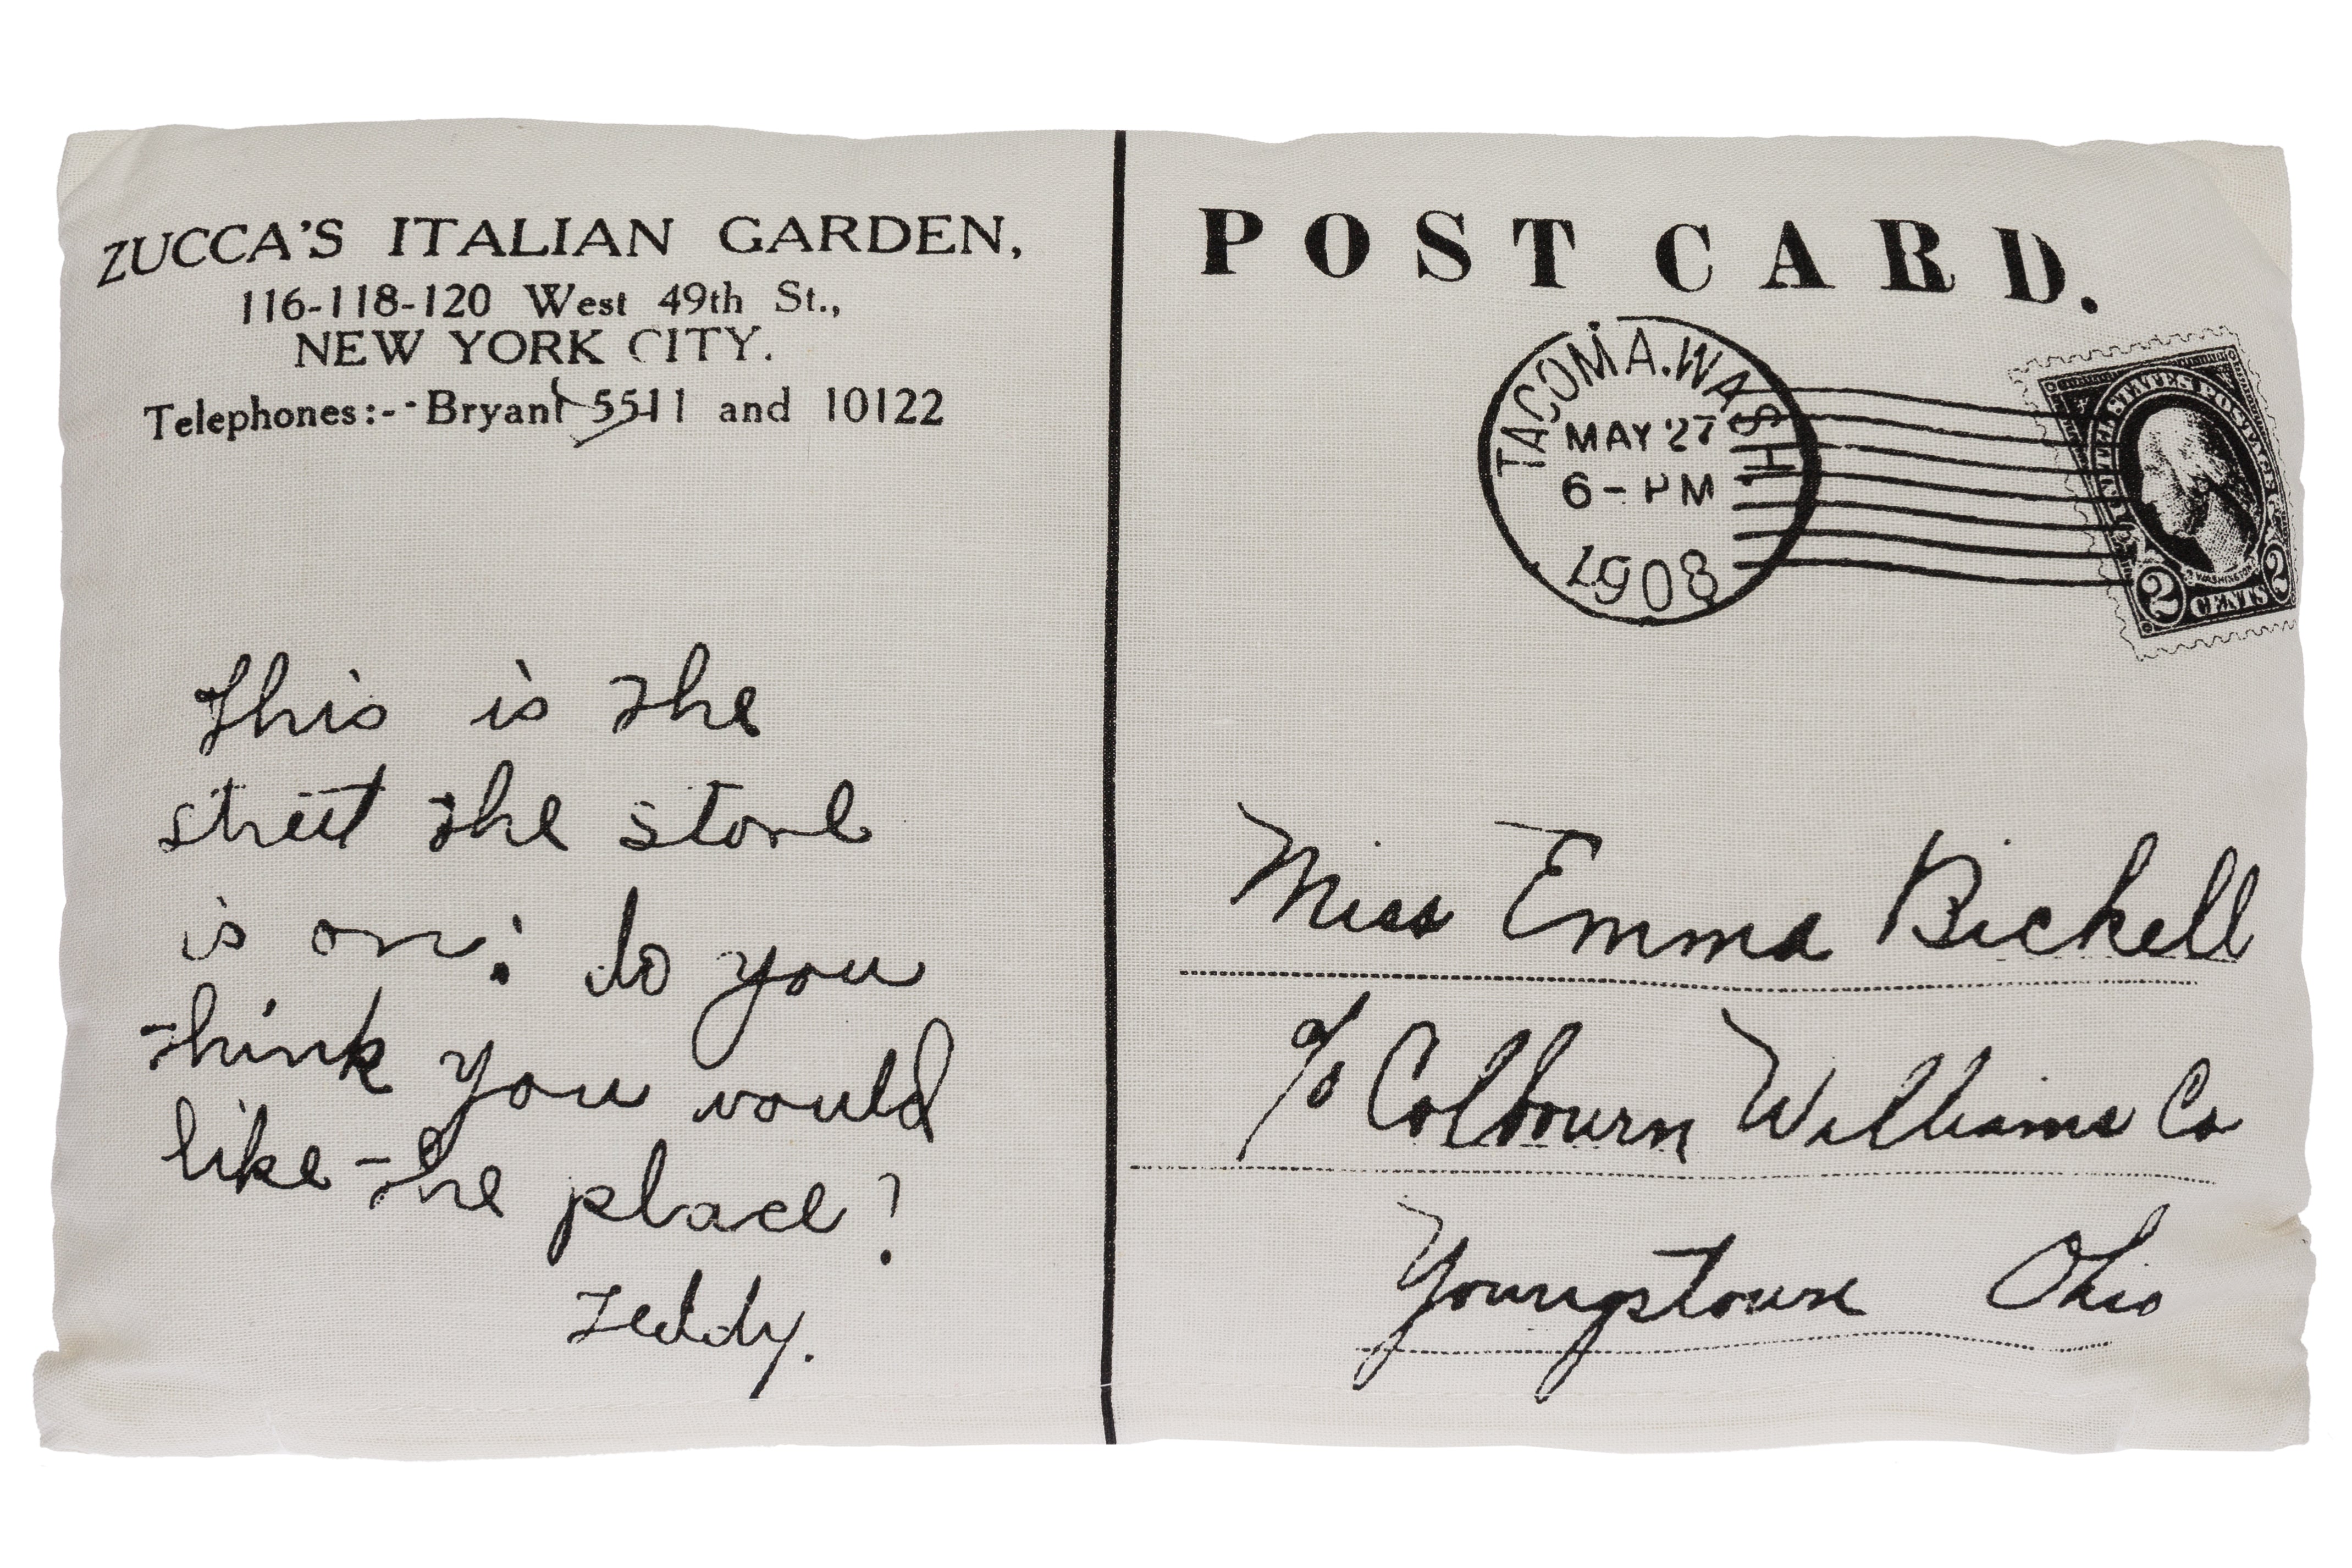 ZUCCA'S ITALIAN GARDEN,
116-118-120 West 49th St.,
NEW YORK CITY.
Telephones:- Bryant 5511 and 10122
This is the
street the store
is on; do you
think you would
like the place?
Teddy.
POST CARD.
TACOMA.WASH
MAY 27
6-PM
1908
UNITED STATES POSTAGE
WASHINGTON
2 CENTS 2
Miss Emma Bickell
c/o Colbourn Williams Co
Youngstown Ohio